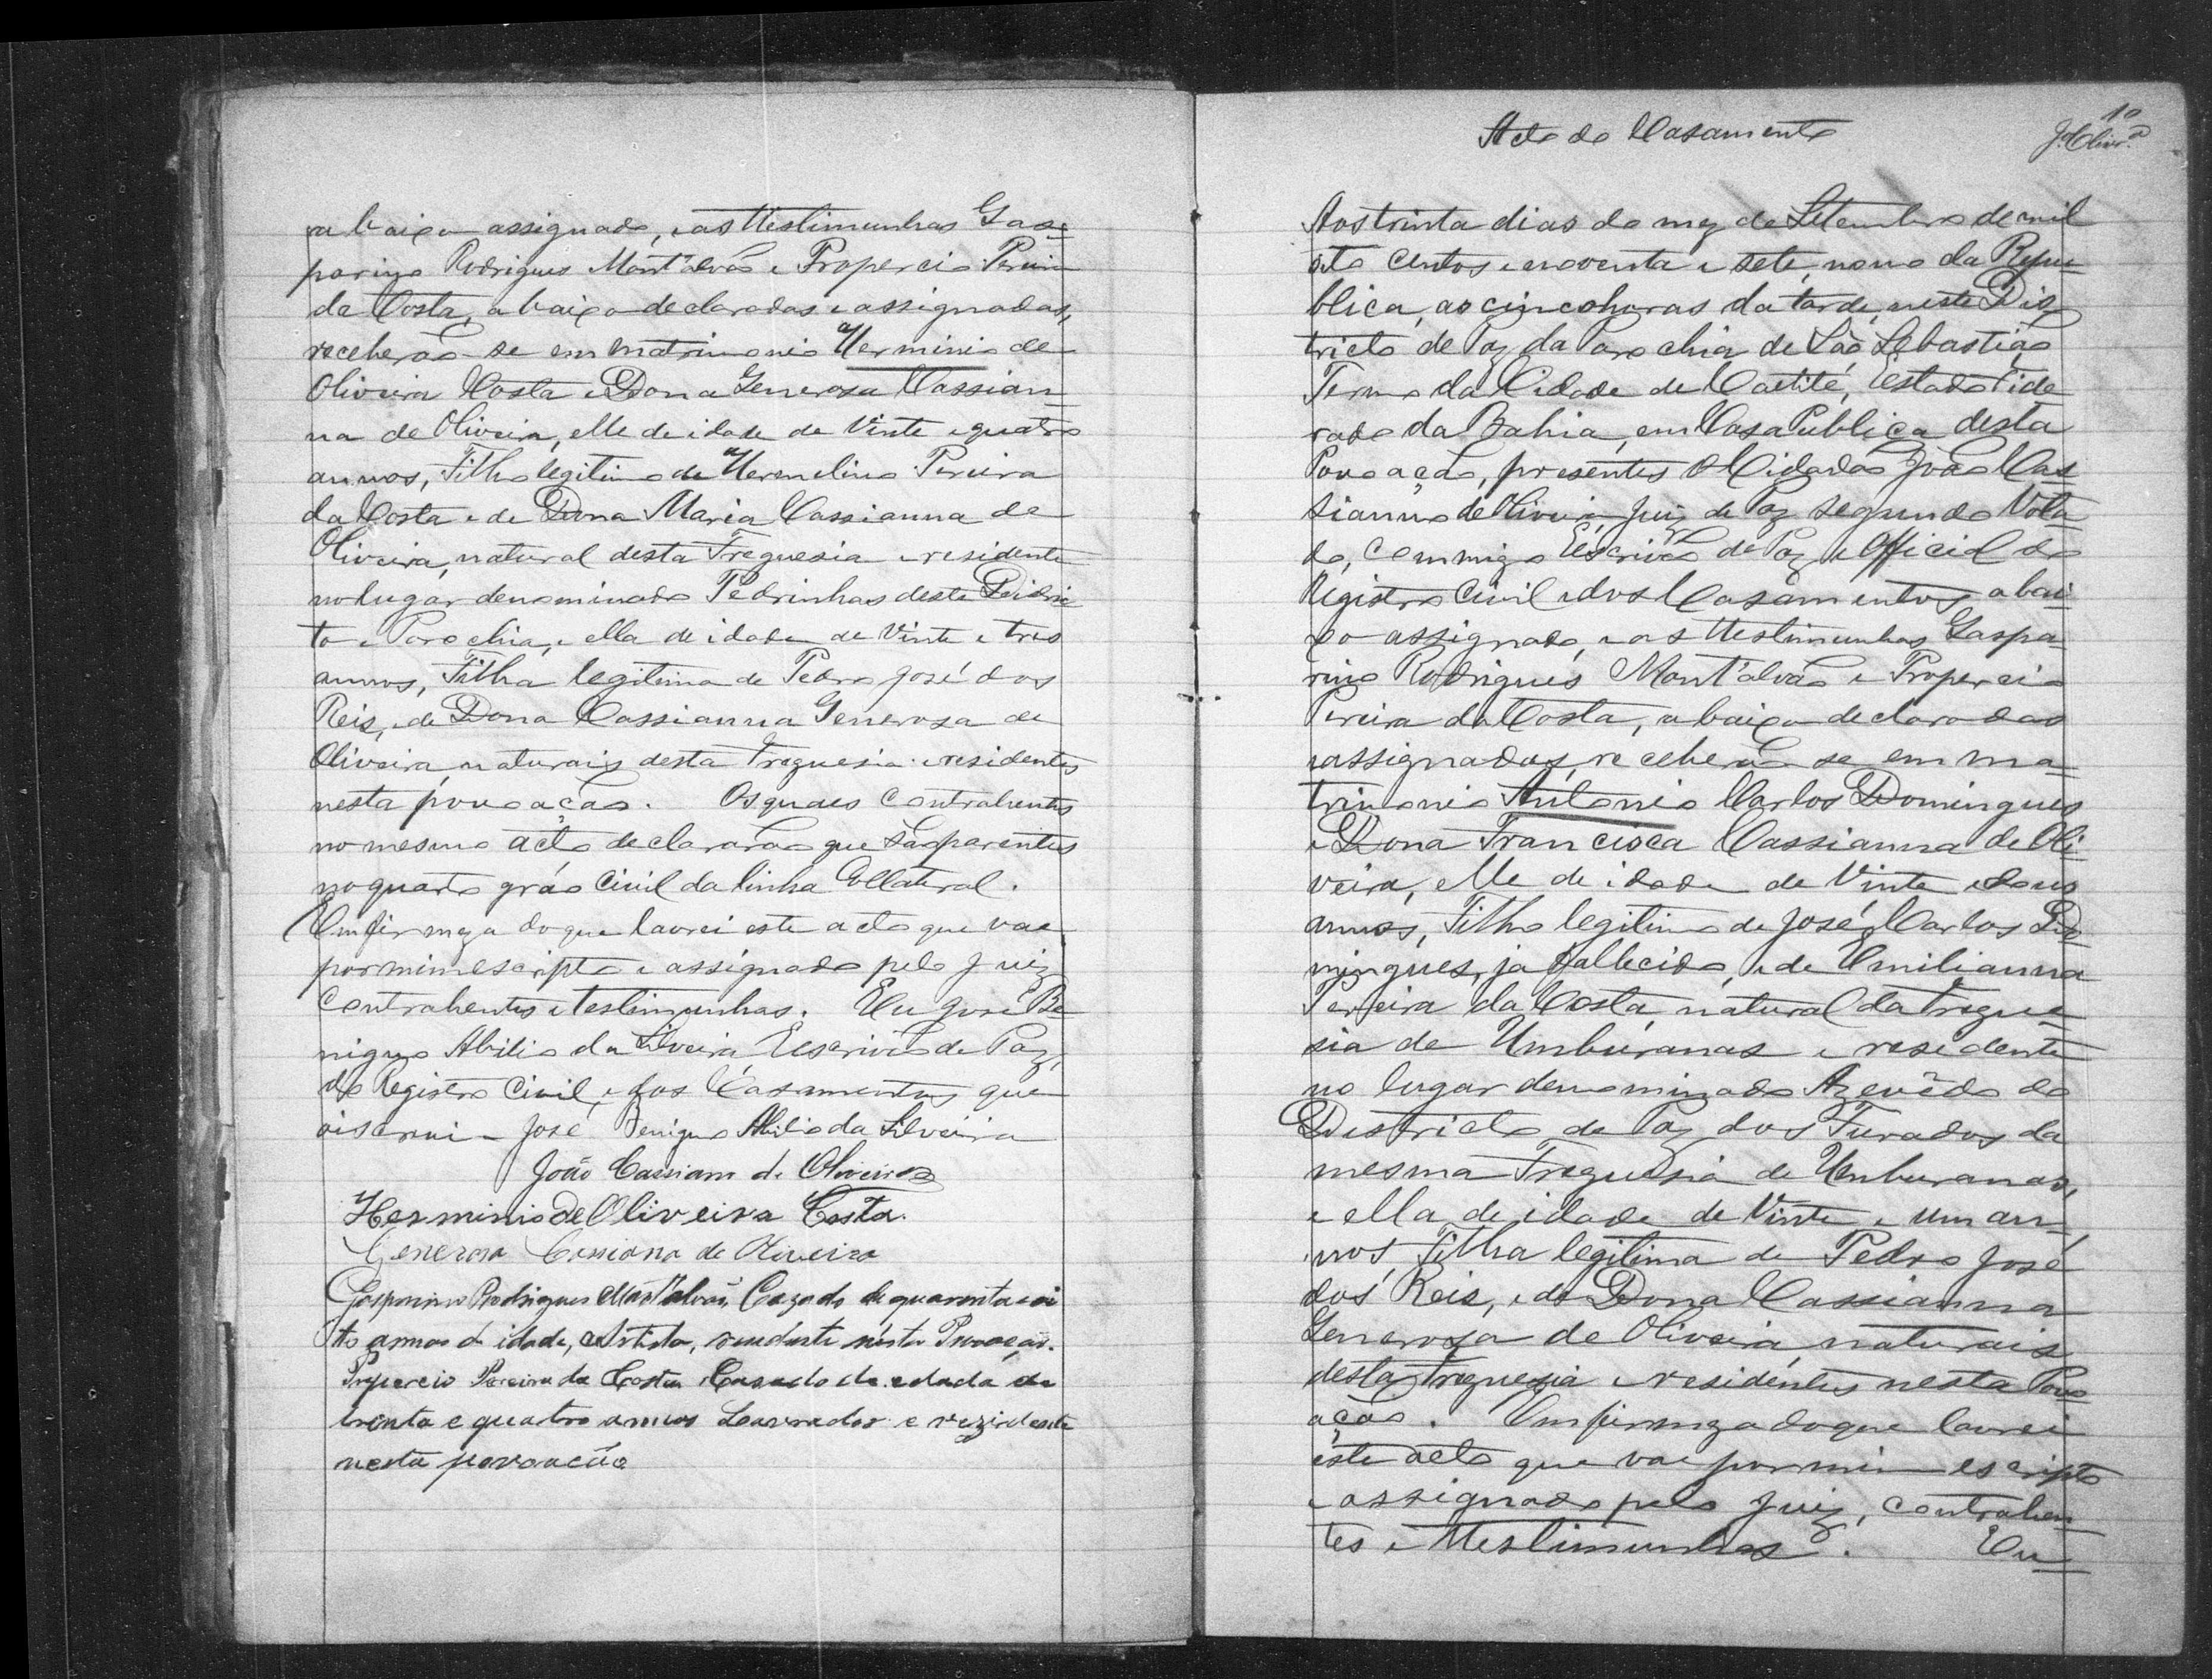 abaixo assignado, e as Testimunhas Gas=
parino Rodrigues Mont'alvão e Propercio Pereira
da Costa, abaixo declaradas e assignadas,
receberão-se em matrimonio Herminio de
Oliveira Costa e Dona Generosa Cassian
na de Oliveira, elle de idade de Vinte e quatro
annos, Filho legitimo de Hermelino Pereira
da Costa e de Dona Maria Cassianna de
Oliveira, natural desta Freguesia e residente
no lugar denominado Pedrinhas deste Distric
to e Parochia, e ella de idade de Vinte e tres
annos, Filha legitima de Pedro José dos
Reis, e de Dona Cassianna Generosa de
Oliveira, naturais desta Freguesia e residentes
nesta povoação. Os quaes Contrahentes
no mesmo acto declararão que são parentes
no quarto gráo Civil da linha Collateral.
Em firmeza do que lavrei este acto que vae
por mim escripto e assignado pelo Juiz
Contrahentes e testimunhas. Eu José Be
nigno Abilio da Silveira Escrivão de Paz,
do Registro Civil, e dos Casamentos que
o iscrevi - José Benigno Abilio da Silveira
João Cassiano de Oliveira
Herminio de Oliveira Costa.
Generosa Cassiana de Oliveira
Gasparino Rodrigues Mont'alvão, Cazado de quarenta e oi
to annos de idade, Artista, residente nésta Povoação.
Propercio Pereira da Costa Casado de edade de
trenta e quatro annos Lavrador e rezidente
nesta povoacão
Acto de Casamento
10
J. Olivr.ª
Aos trinta dias do mez de Setembro de mil
oito centos e noventa e sete, nono da Repu=
blica, as cinco horas da tarde, neste Dis
tricto de Paz da Parochia de São Sebastião
Termo da Cidade de Caetité, Estado Fide
rado da Bahia, em Casa Publica desta
Povoação, presentes o Cidadão João Cas
sianno de Oliveira, Juiz de Paz segundo Vota
do, Commigo Escrivão de Paz e Official do
Registro Civil e dos Casamentos, abai
xo assignado, e as Testimunhas Gaspa
rino Rodrigues Mont'alvão e Propercio
Pereira da Costa, abaixo declaradas
e assignadas, receberão se em ma=
trimonio Antonio Carlos Domingues
e Dona Francisca Cassianna de Oli
veira, elle de idade de Vinte e dous
annos, Filho legitimo de José Carlos Do
mingues, ja fallecido, e de Emilianna
Pereira da Costa, natural da Fregue
sia de Umburanas e residente
no lugar denominado Azevêdo do
Districto de Paz dos Furados da
mesma Freguesia de Umburanas,
e ella de idade de Vinte e um an
nos, Filha legitima de Pedro José
dos Reis, e de Dona Cassianna
Generosa de Oliveira, naturais
desta Freguesia e residentes nesta Povo
ação. Em firmeza do que lavrei
este acto que vae por mim escripto
e assignado pelo Juiz, Contrahen
tes e Testimunhas. Eu